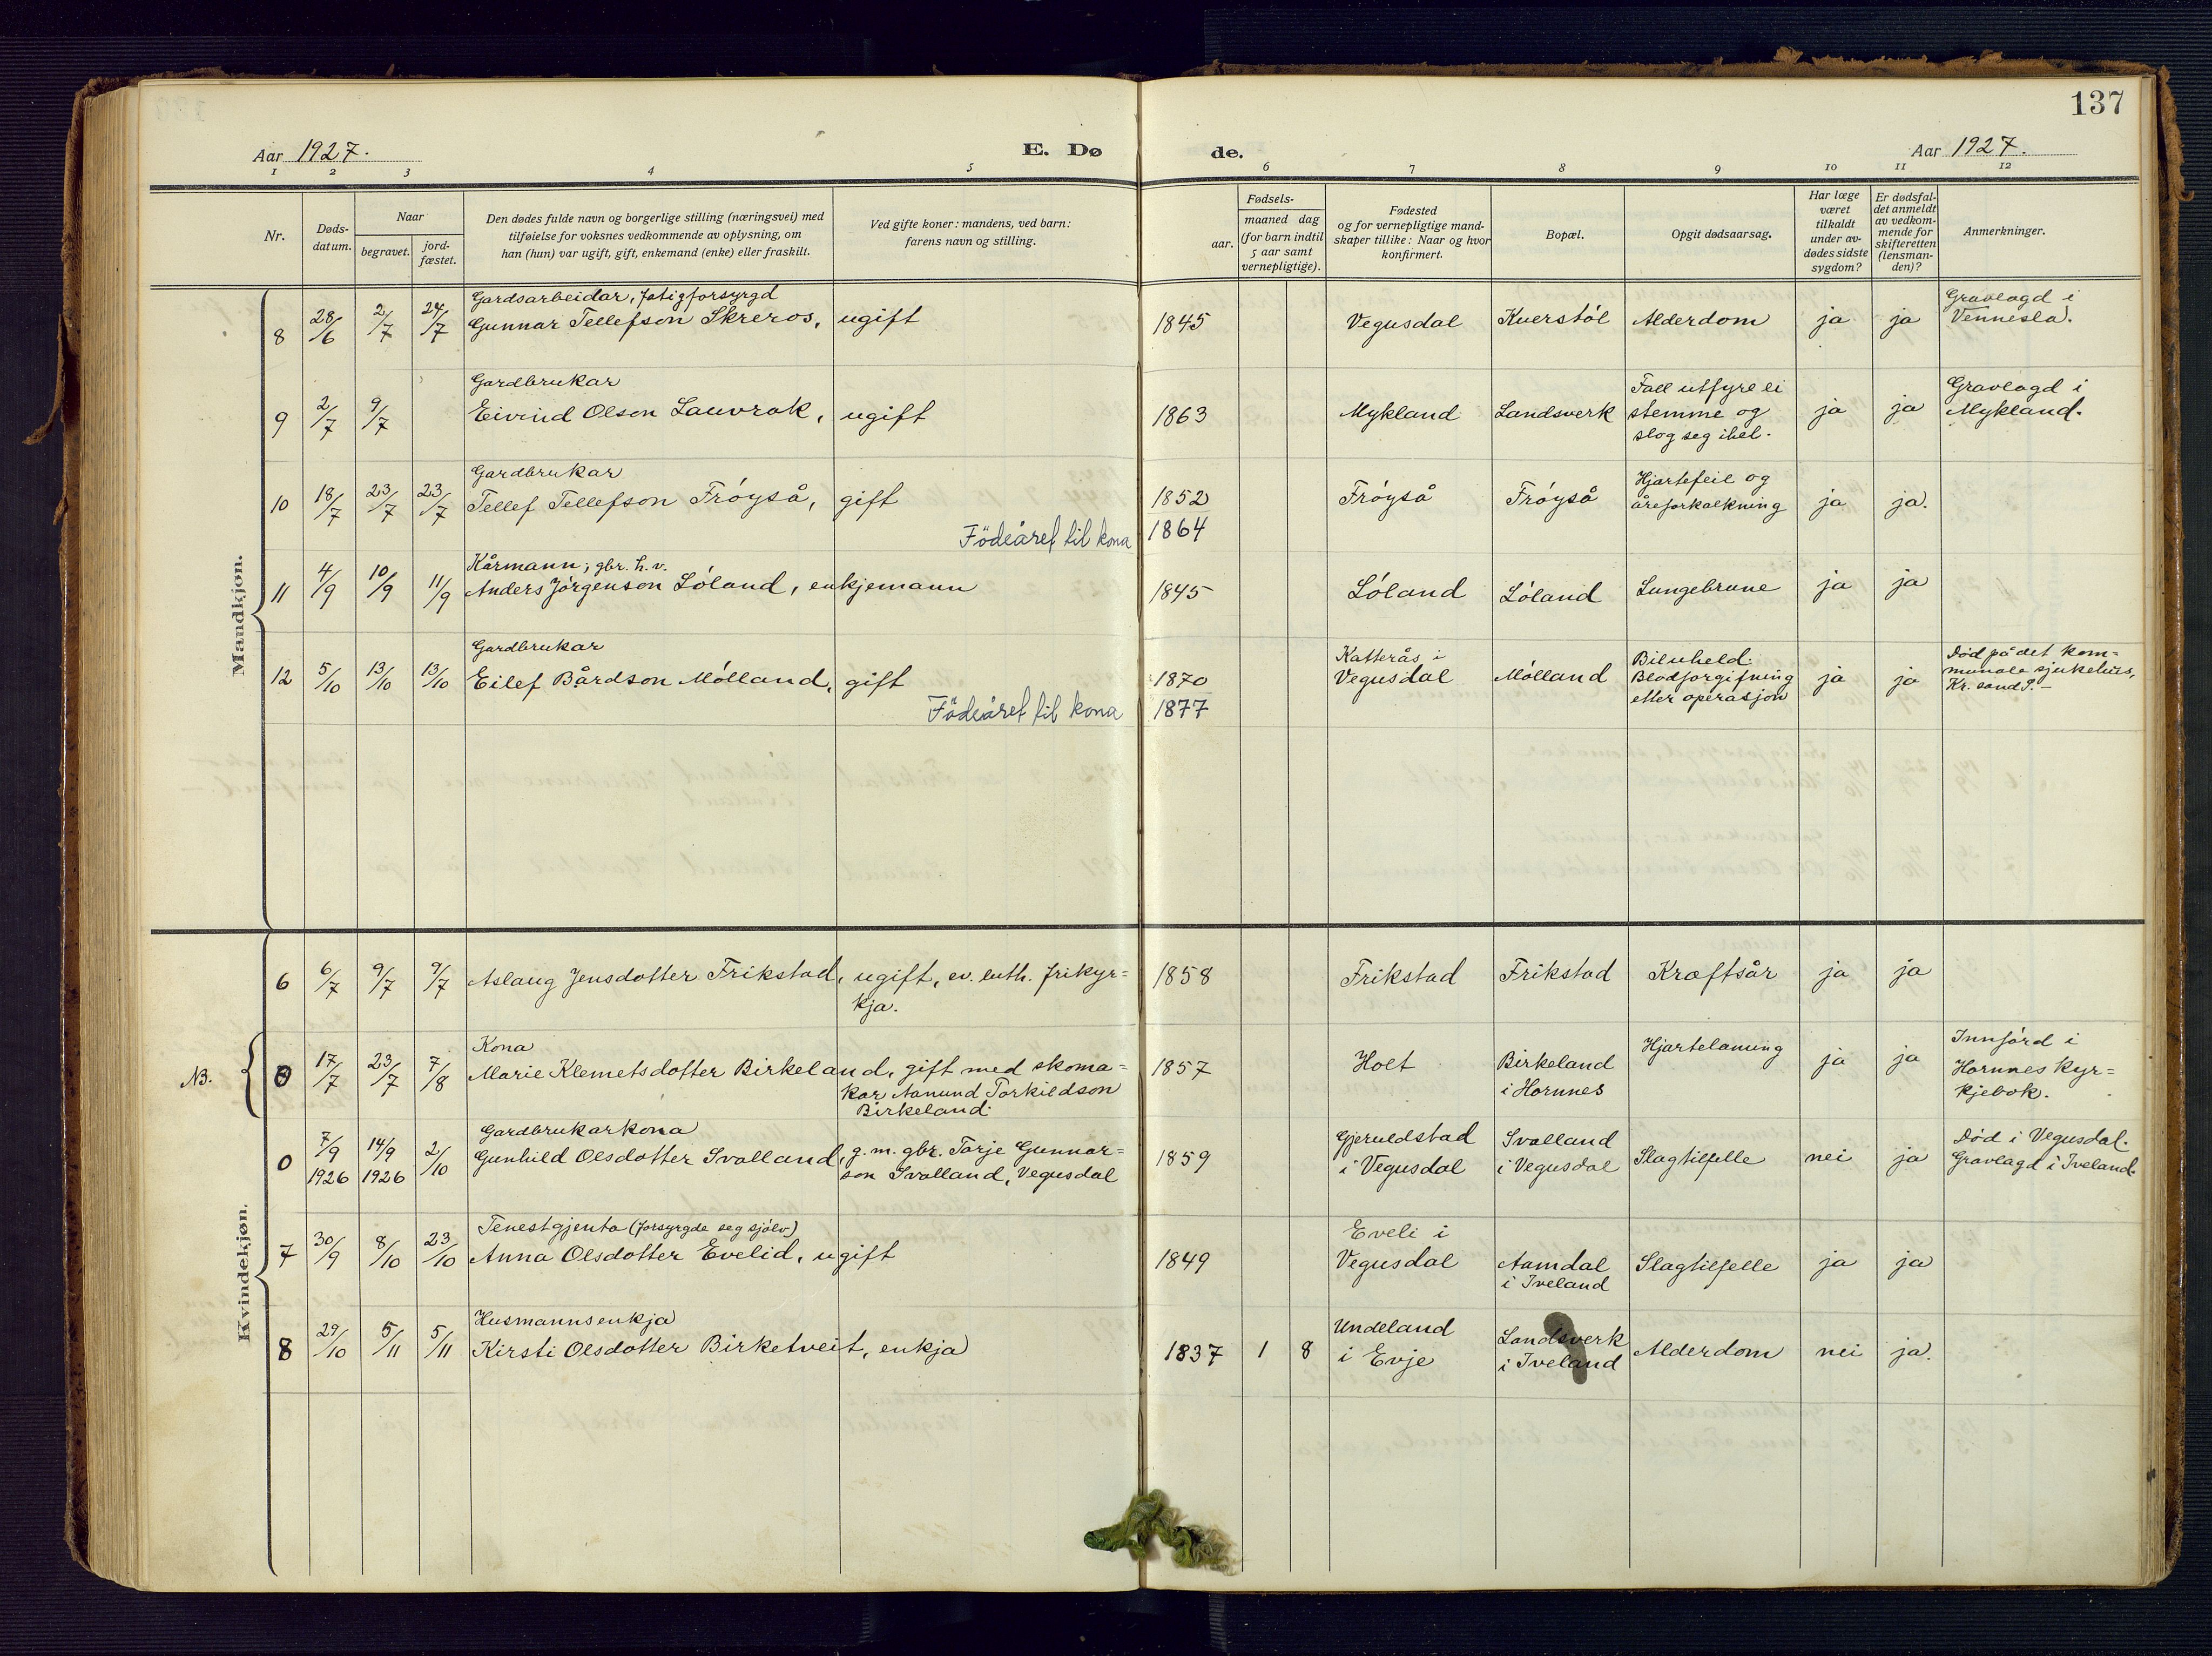 137
Aar 1927.
E. Dø
de.
Aar 1927.
1 2 3 4 5 6 7 8 9 10 11 12
Nr.
Døds-
datum.
Naar
begravet.
jord-
fæstet.
Den dødes fulde navn og borgerlige stilling (næringsvei) med
tilføielse for voksnes vedkommende av oplysning, om
han (hun) var ugift, gift, enkemand (enke) eller fraskilt.
Ved gifte koner: mandens, ved barn:
farens navn og stilling.
Fødsels-
aar.
maaned dag
(for barn indtil
5 aar samt
vernepligtige).
Fødested
og for vernepligtige mand-
skaper tillike: Naar og hvor
konfirmert.
Bopæl.
Opgit dødsaarsag.
Har læge
været
tilkaldt
under av-
dødes sidste
sygdom?
Er dødsfal-
det anmeldt
av vedkom-
mende for
skifteretten
(lensman-
den)?
Anmerkninger.
Mandkjøn.
Gardsarbeidar, fatigforsyrgd
8 28/6 2/7 24/7 Gunnar Tellefson Skreros, ugift 1845 Vegusdal Kverstöl Alderdom ja ja
Gravlagd i
Vennesla.
Gardbrukar
9 2/7 9/7 Eivind Olson Lauvrak, ugift 1863 Mykland Landsverk
Fall utfyre ei
stemme og
slog seg ihel.
ja ja
Gravlagd i
Mykland.
Gardbrukar
10 18/7 23/7 23/7 Tellef Tellefson Fróyså, gift 1852 Fróyså Fróyså
Hjartefeil og
åreforkalkning
ja ja.
Födeåret til kona 1864
Kårmann; gbr. h. v.
11 4/9 10/9 11/9 Anders Jórgenson Lóland, enkjemann 1845 Lóland Lóland Lungebrune ja ja
Gardbrukar
12 5/10 13/10 13/10 Eilef Bårdson Mólland, gift 1870
Katterås i
Vegusdal
Mólland
Biluheld.
Blodforgifning
etter operasjon
ja ja
Död på det kom-
munale sjukehus,
Kr.sand S.-
Födeåret til kona 1877
Kvindekjøn.
6 6/7 9/7 9/7 Aslaug Jensdotter Frikstad, ugift, ev. luth. frikyr=
kja.
1858 Frikstad Frikstad Kræftsår ja ja
Kona
NB. 0 17/7 23/7 7/8 Marie Klemetsdotter Birkeland, gift med skoma=
kar Aanund Torkildson
Birkeland.
1857 Holt
Birkeland
i Hornnes
Hjartelaming ja ja
Innförd i
Hornnes kyr=
kjebok.
Gardbrukarkona
0 7/9 1926 14/9 1926 2/10 Gunhild Olsdotter Svalland, g. m. gbr. Torje Gunnar=
son Svalland, Vegusdal
1859
Gjeruldstad
i Vegusdal
Svalland
i Vegusdal
Slagtilfelle nei ja
Död i Vegusdal.
Gravlagd i Iveland.
Tenestgjenta (forsyrgde seg sjólv)
7 30/9 8/10 23/10 Anna Olsdotter Evelid, ugift 1849
Eveli i
Vegusdal
Aamdal
i Iveland
Slagtilfelle ja ja
Husmannsenkja
8 29/10 5/11 5/11 Kirsti Olsdotter Birketveit, enkja 1837 1 8
Undeland
i Evje
Landsverk
i Iveland
Alderdom nei ja.